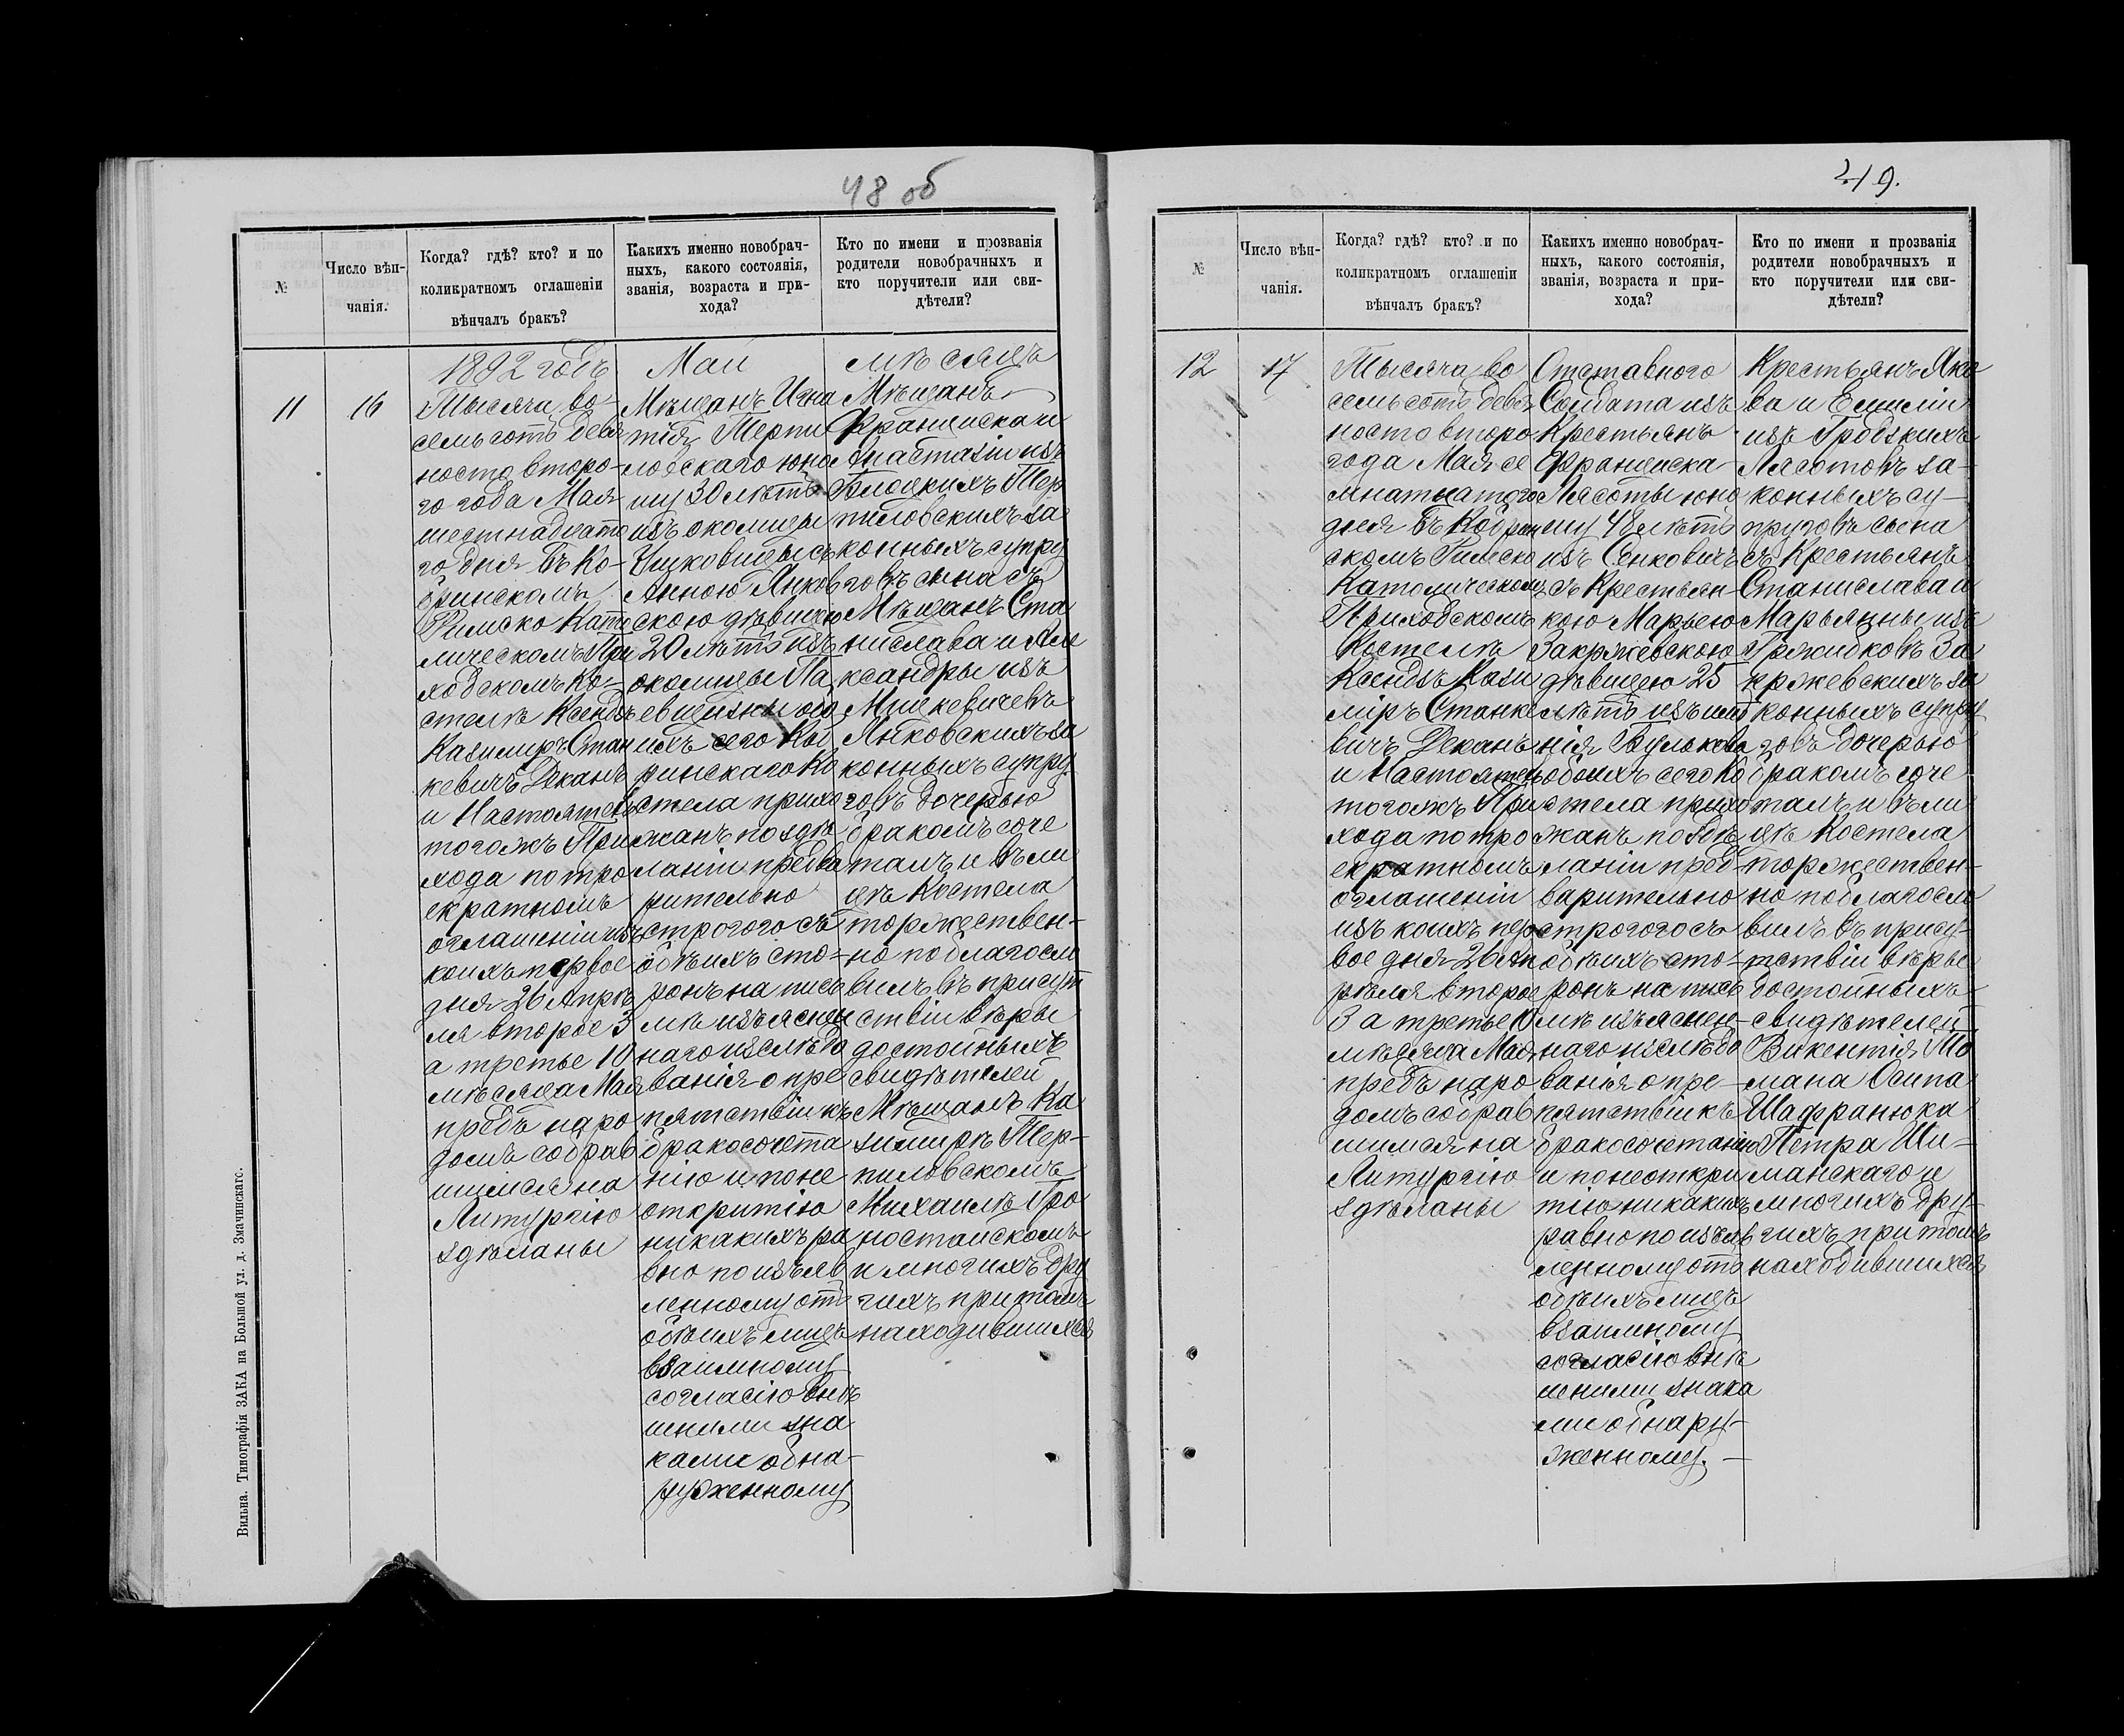 48 об
№
Число вѣн-
чанія.
Когда? гдѣ? кто? и по
коликратномъ оглашеніи
вѣнчалъ бракъ?
Какихъ именно новобрач-
ныхъ, какого состоянія,
званія, возраста и при-
хода?
Кто по имени и прозванія
родители новобрачныхъ и
кто поручители или сви-
дѣтели?
11
16
1892 годъ
Тысяча во-
семьсотъ девя
носто второ-
го года Мая
шестнадцато
го дня въ Ко-
бринскомъ
Римско Като
лическомъ При
ходскомъ Ко-
стелѣ Ксендзъ
Казимиръ Стан
кевичъ Деканъ
и Настоятель
тогожъ При
хода по тро
екратномъ
оглашеніи изъ
коихъ первое
дня 26 Апрѣ
ля второе 3
а третье 10
мѣсяца Мая
предъ наро
домъ собрав
шимся на
Литургію
здѣланы
Май
Мѣщанъ Игна
тія Терпи
ловскаго юно
шу 30 лѣтъ
изъ околицы
съ
Анною Янков
скою дѣвицею
20 лѣтъ изъ
околицы Па
евщизны обо
ихъ сего Коб
ринскаго Ко
стела прихо
жанъ по здѣ
ланіи предва
рительно
строгого съ
обѣихъ сто-
ронъ на пись
мѣ изъяснен
наго изслѣдо
ванія о пре
пятствіи къ
бракосочета
нію и по не
открытію
никакихъ ра
вно по изъяв
ленному отъ
обѣихъ лицъ
взаимному
согласію внѣ
шними зна
ками обна-
руженному
мѣсяцъ
Мѣщанъ
Францишка и
Анастазіи изъ
Блоцкихъ Тер
пиловскихъ за
конныхъ супру
говъ сына съ
Мѣщанъ Ста
нислава и Але
ксандры изъ
Мицкевичевъ
Янковскихъ за
конныхъ супру
говъ дочерью
бракомъ соче
талъ и въ ли
цѣ Костела
торжествен-
но поблагосло
вилъ въ присут
ствіи вѣры
достойныхъ
свидѣтелей
Мѣщанъ Ка
зимирѣ Тер-
пиловскомъ
Михаилѣ Гро
ностайскомъ
и многихъ дру
гихъ при томъ
находившихся
Вильна. Типографія ЗАКА на Большой ул. д. Змачинскаго.
49.
№
Число вѣн-
чанія.
Когда? гдѣ? кто? и по
коликратномъ оглашеніи
вѣнчалъ бракъ?
Какихъ именно новобрач-
ныхъ, какого состоянія,
званія, возраста и при-
хода?
Кто по имени и прозванія
родители новобрачныхъ и
кто поручители или сви-
дѣтели?
12
17
Тысяча во
семьсотъ девя
носто второ
года Мая се
мнатцатого
дня въ Кобрин
скомъ Римско
Католическомъ
Приходскомъ
Костелѣ
Ксендзъ Кази
міръ Станке
вичъ Деканъ
и Настоятель
тогожъ При
хода по тро
екратномъ
оглашеніи
изъ коихъ пер
вое дня 26 Ап
рѣля второе
3 а третье 10
мѣсяца Мая
предъ наро
домъ собрав
шимся на
Литургію
здѣланы
Отставного
Солдата изъ
Крестьянъ
Францишка
Лясоты юно
шу 48 лѣтъ
изъ Сенковичъ
съ Крестьян-
кою Марьею
Закржевскою
дѣвицею 25
лѣтъ изъ имѣ
нія
обоихъ сего Ко
стела прихо
жанъ по здѣ
ланіи пред-
варительно
строгого съ
обѣихъ сто-
ронъ на пись
мѣ изъяснен-
наго изслѣдо
ванія о пре-
пятствіи къ
бракосочетанію
и по неоткры
тію никакихъ
равно по изъяв
ленному отъ
обѣихъ лицъ
взаимному
согласію внѣ
шними знака
ми обнару-
женному. —
Крестьянъ Яко
ва и Емиліи
изъ Гробзкихъ
Лясотовъ за-
конныхъ су-
пруговъ сына
съ Крестьянъ
Станислава и
Марьянны изъ
Гржибковъ За
кржевскихъ за
конныхъ супру
говъ дочерью
бракомъ соче
талъ и въ ли
цѣ Костела
торжествен-
но поблагосло
вилъ въ прису-
тствіи вѣры
достойныхъ
свидѣтелей
Викентія То
мана Осипа
Шафранюка
Петра Ши-
манскаго и
многихъ дру-
гихъ при томъ
находившихся